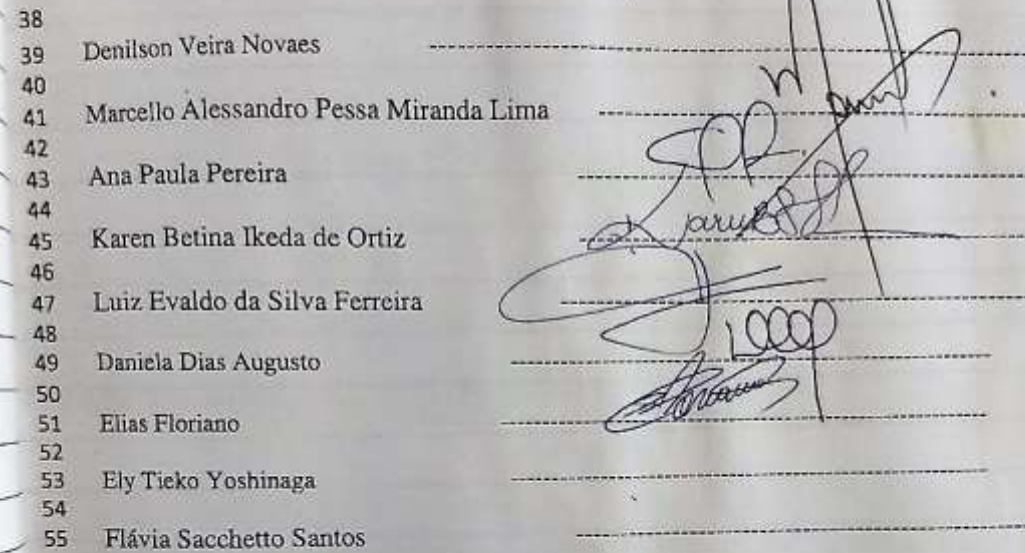 38
39 Denilson Veira Novaes
40
41 Marcello Alessandro Pessa Miranda Lima
42
43 Ana Paula Pereira
44
45 Karen Betina Ikeda de Ortiz
46
47 Luiz Evaldo da Silva Ferreira
48
49 Daniela Dias Augusto
50
51 Elias Floriano
52
53 Ely Tieko Yoshinaga
54
55 Flávia Sacchetto Santos